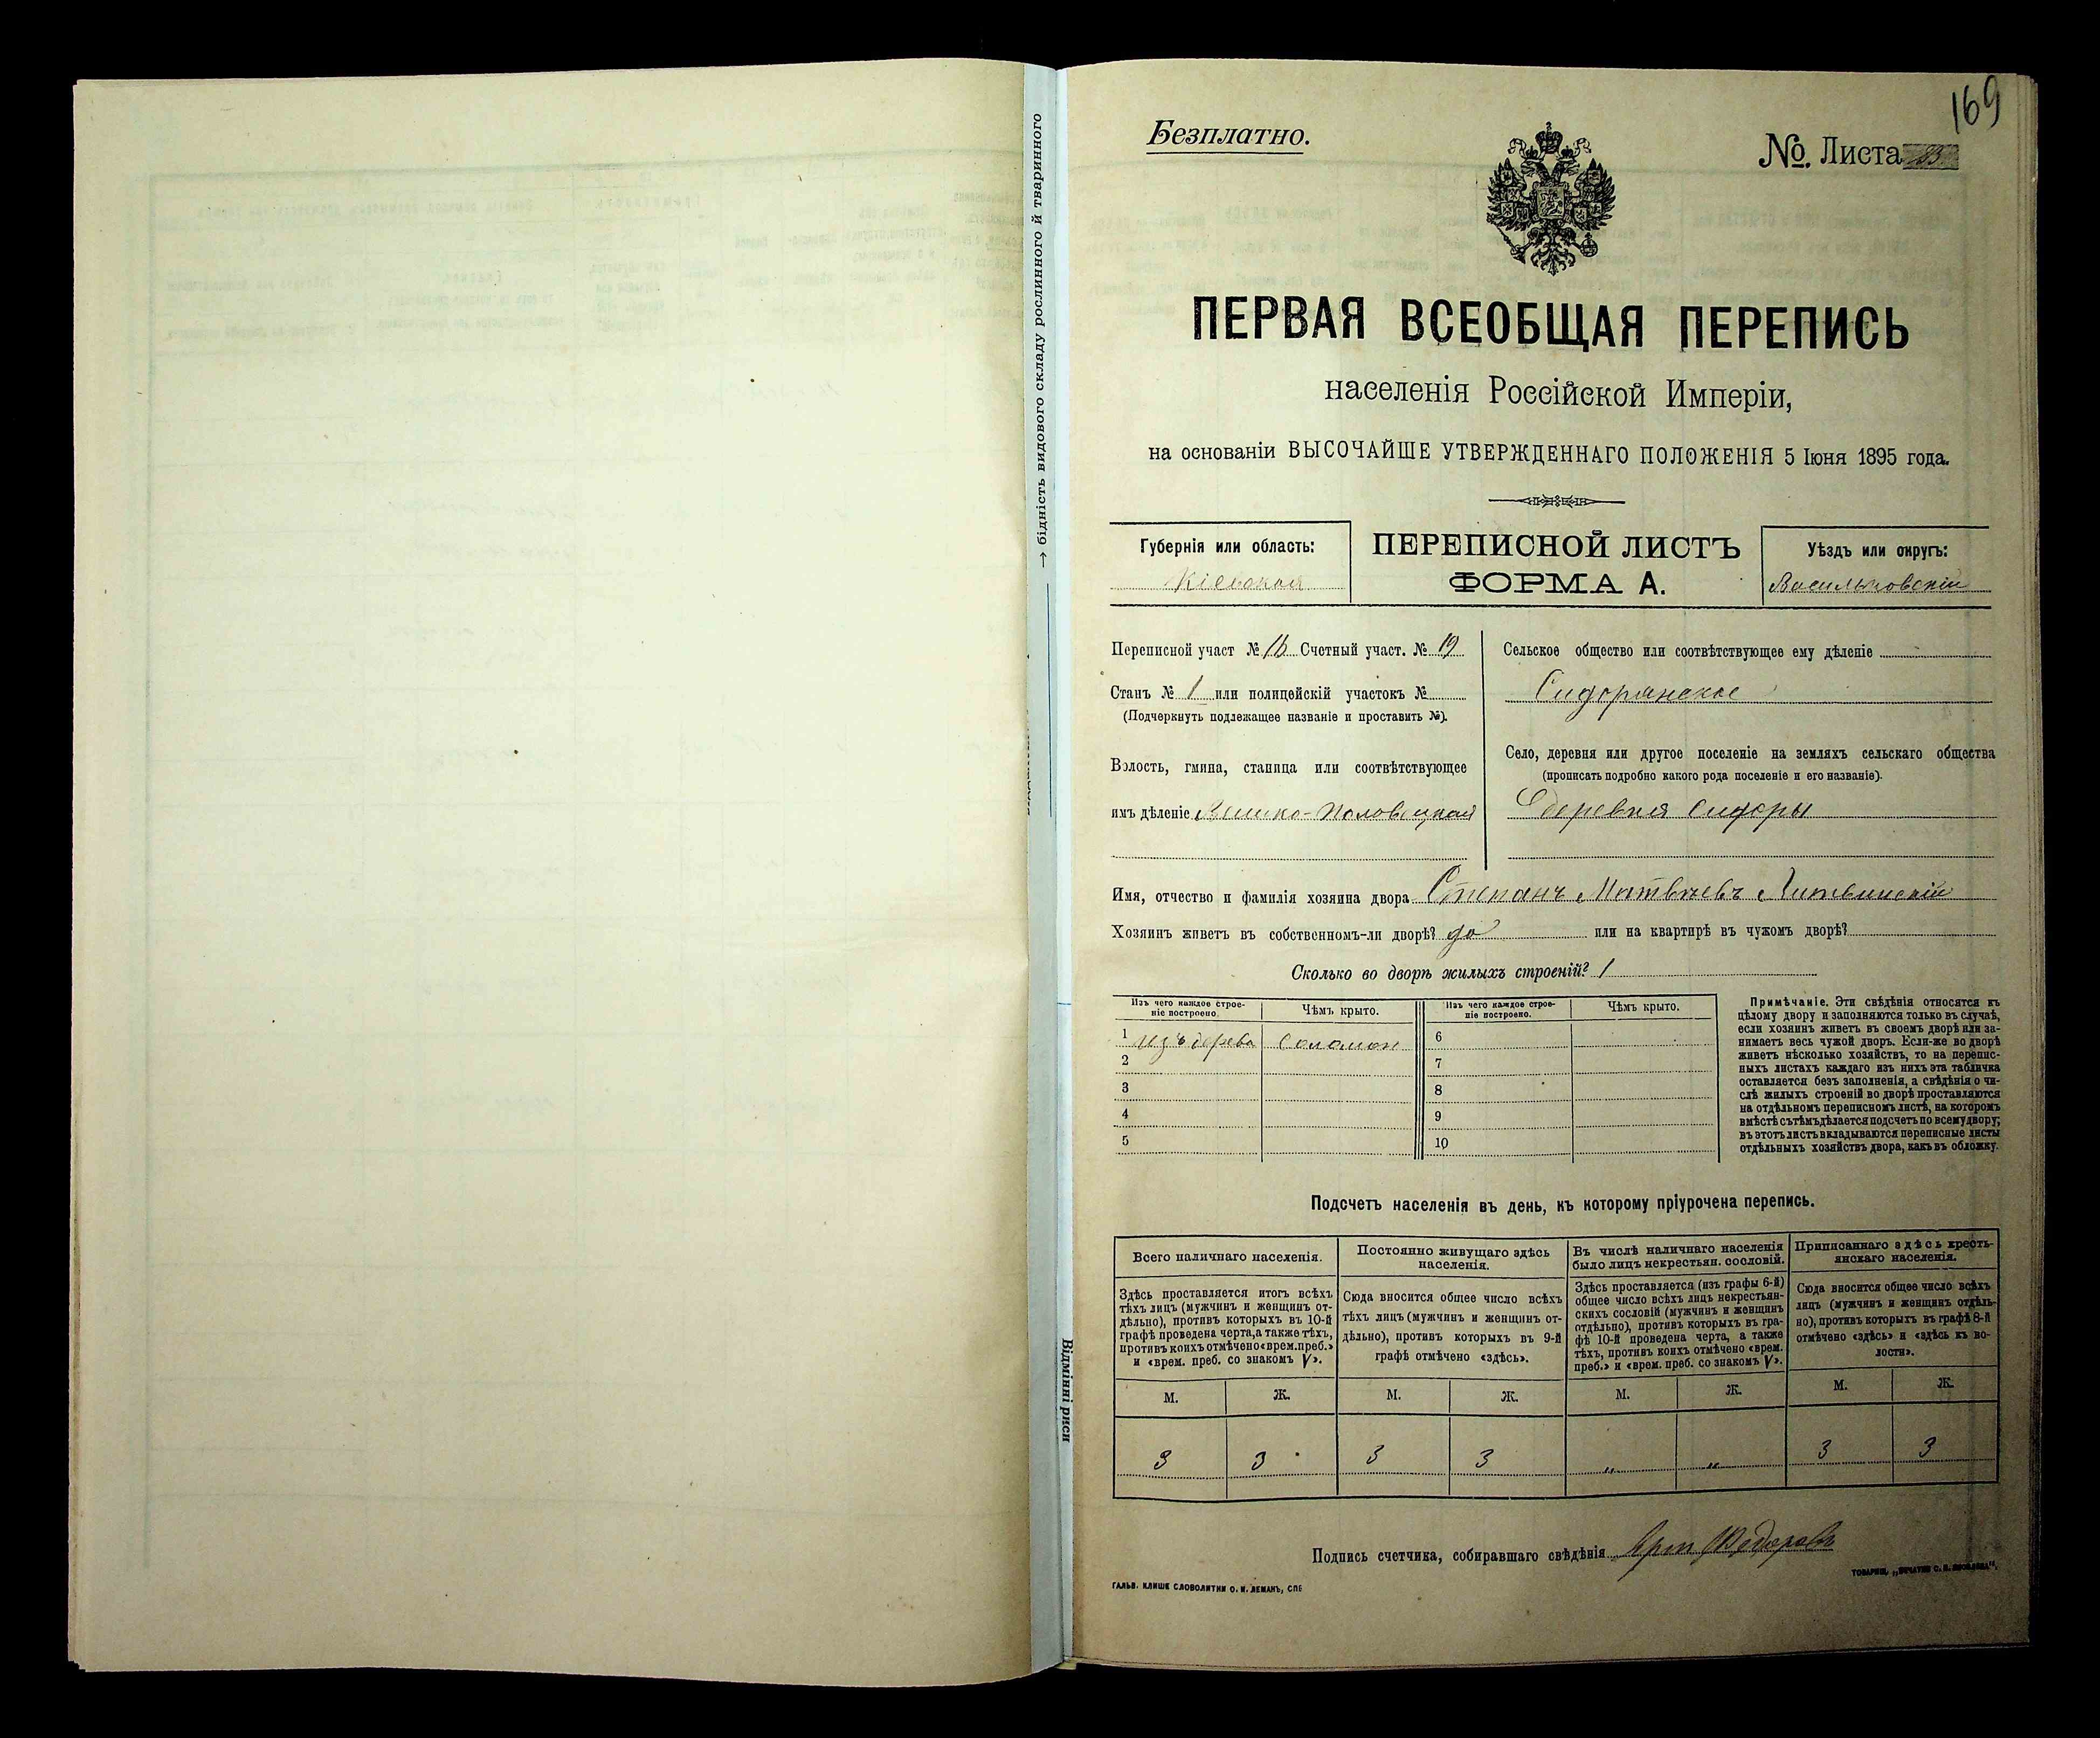 → бідність видового складу рослинного й тваринного
Відмінні риси
169
Безплатно.
№. Листа 83
ПЕРВАЯ ВСЕОБЩАЯ ПЕРЕПИСЬ
населенія Россійской Имперіи,
на основаніи ВЫСОЧАЙШЕ УТВЕРЖДЕННАГО ПОЛОЖЕНІЯ 5 Іюня 1895 года.
Губернія или область:
Кіевская
ПЕРЕПИСНОЙ ЛИСТЪ
ФОРМА А.
Уѣздъ или округъ:
Васильковскій
Переписной участ № 16 Счетный участ. № 19
Станъ № 1 или полицейскій участокъ №
(Подчеркнуть подлежащее названіе и проставить №).
Волость, гмина, станица или соотвѣтствующее
имъ дѣленіе Велико-Половецкая
Сельское общество или соотвѣтствующее ему дѣленіе
Сидорянское
Село, деревня или другое поселеніе на земляхъ сельскаго общества
(прописать подробно какого рода поселеніе и его названіе).
Деревня Сидоры
Имя, отчество и фамилія хозяина двора Степанъ Матвѣевъ Литвинскій
Хозяинъ живетъ въ собственномъ-ли дворѣ? да или на квартирѣ въ чужомъ дворѣ?
Сколько во дворѣ жилыхъ строеній? 1
Изъ чего каждое строе-
ніе построено.
Чѣмъ крыто.
Изъ чего каждое строе-
ніе построено.
Чѣмъ крыто.
1 изъ дерева Соломой 6
2 7
3 8
4 9
5 10
Примѣчаніе. Эти свѣдѣнія относятся къ
цѣлому двору и заполняются только въ случаѣ,
если хозяинъ живетъ въ своемъ дворѣ или за-
нимаетъ весь чужой дворъ. Если-же во дворѣ
живетъ нѣсколько хозяйствъ, то на перепис-
ныхъ листахъ каждаго изъ нихъ эта табличка
оставляется безъ заполненія, а свѣдѣнія о чи-
слѣ жилыхъ строеній во дворѣ проставляются
на отдѣльномъ переписномъ листѣ, на которомъ
вмѣстѣ съ тѣмъ дѣлается подсчетъ по всему двору;
въ этотъ листъ вкладываются переписные листы
отдѣльныхъ хозяйствъ двора, какъ въ обложку.
Подсчетъ населенія въ день, къ которому пріурочена перепись.
Всего наличнаго населенія.
Здѣсь проставляется итогъ всѣхъ
тѣхъ лицъ (мужчинъ и женщинъ от-
дѣльно), противъ которыхъ въ 10-й
графѣ проведена черта, а также тѣхъ,
противъ коихъ отмѣчено «врем. преб.»
и «врем. преб. со знакомъ V».
Постоянно живущаго здѣсь
населенія.
Сюда вносится общее число всѣхъ
тѣхъ лицъ (мужчинъ и женщинъ от-
дѣльно), противъ которыхъ въ 9-й
графѣ отмѣчено «здѣсь».
Въ числѣ наличнаго населенія
было лицъ некрестьян. сословій.
Здѣсь проставляется (изъ графы 6-й)
общее число всѣхъ лицъ некрестьян-
скихъ сословій (мужчинъ и женщинъ
отдѣльно), противъ которыхъ въ гра-
фѣ 10-й проведена черта, а также
тѣхъ, противъ коихъ отмѣчено «врем.
преб.» и «врем. преб. со знакомъ V».
Приписаннаго здѣсь кресть-
янскаго населенія.
Сюда вносится общее число всѣхъ
лицъ (мужчинъ и женщинъ отдѣль-
но), противъ которыхъ въ графѣ 8-й
отмѣчено «здѣсь» и «здѣсь къ во-
лости».
М. Ж. М. Ж. М. Ж. М. Ж.
3 3 3 3 „ „ 3 3
Подпись счетчика, собиравшаго свѣдѣнія Федоровъ
ГАЛЬВ. КЛИШЕ СЛОВОЛИТНИ О. И. ЛЕМАНЪ, СПБ
ТОВАРИЩ. „ПЕЧАТНЯ С. П. ЯКОВЛЕВА".